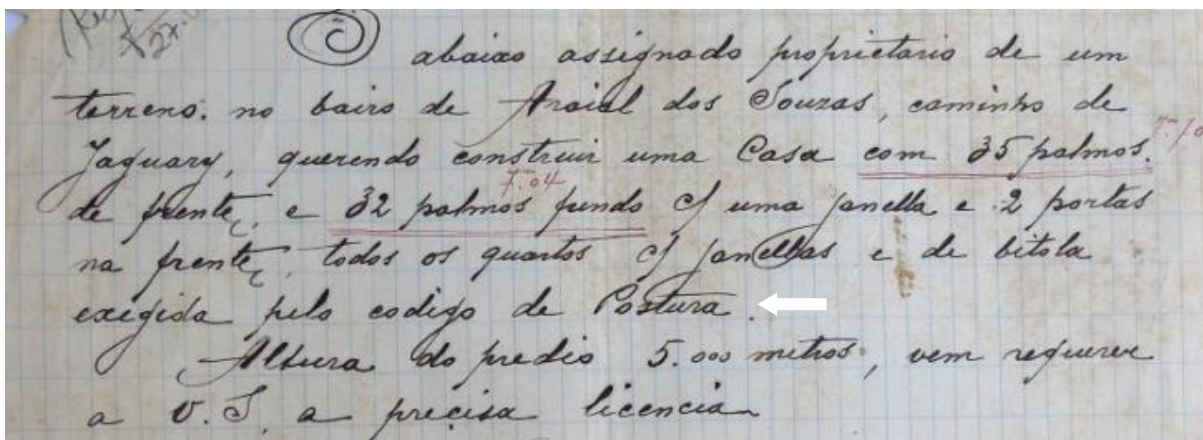 O abaixo assignado proprietario de um
terreno. no bairo de Araial dos Souzas, caminho de
Jaguary, querendo construir uma Casa com 35 palmos.
7.m04
de frente, e 32 palmos fundo c/ uma janella e 2 portas
na frente, todos os quartos c/ janellas e de bitola
exigida pelo codigo de Postura.
Altura do predio 5.000 metros, vem requerer
a V.S. a precisa licencia